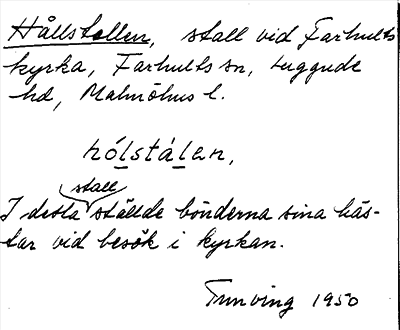 Hållstallen, stall vid Farhults
kyrka, Farhults sn, Luggude
hd, Malmöhus l.
hólstálen,
I detta stall ställde bönderna sina häs-
tar vid besök i kyrkan.
Tunving 1950